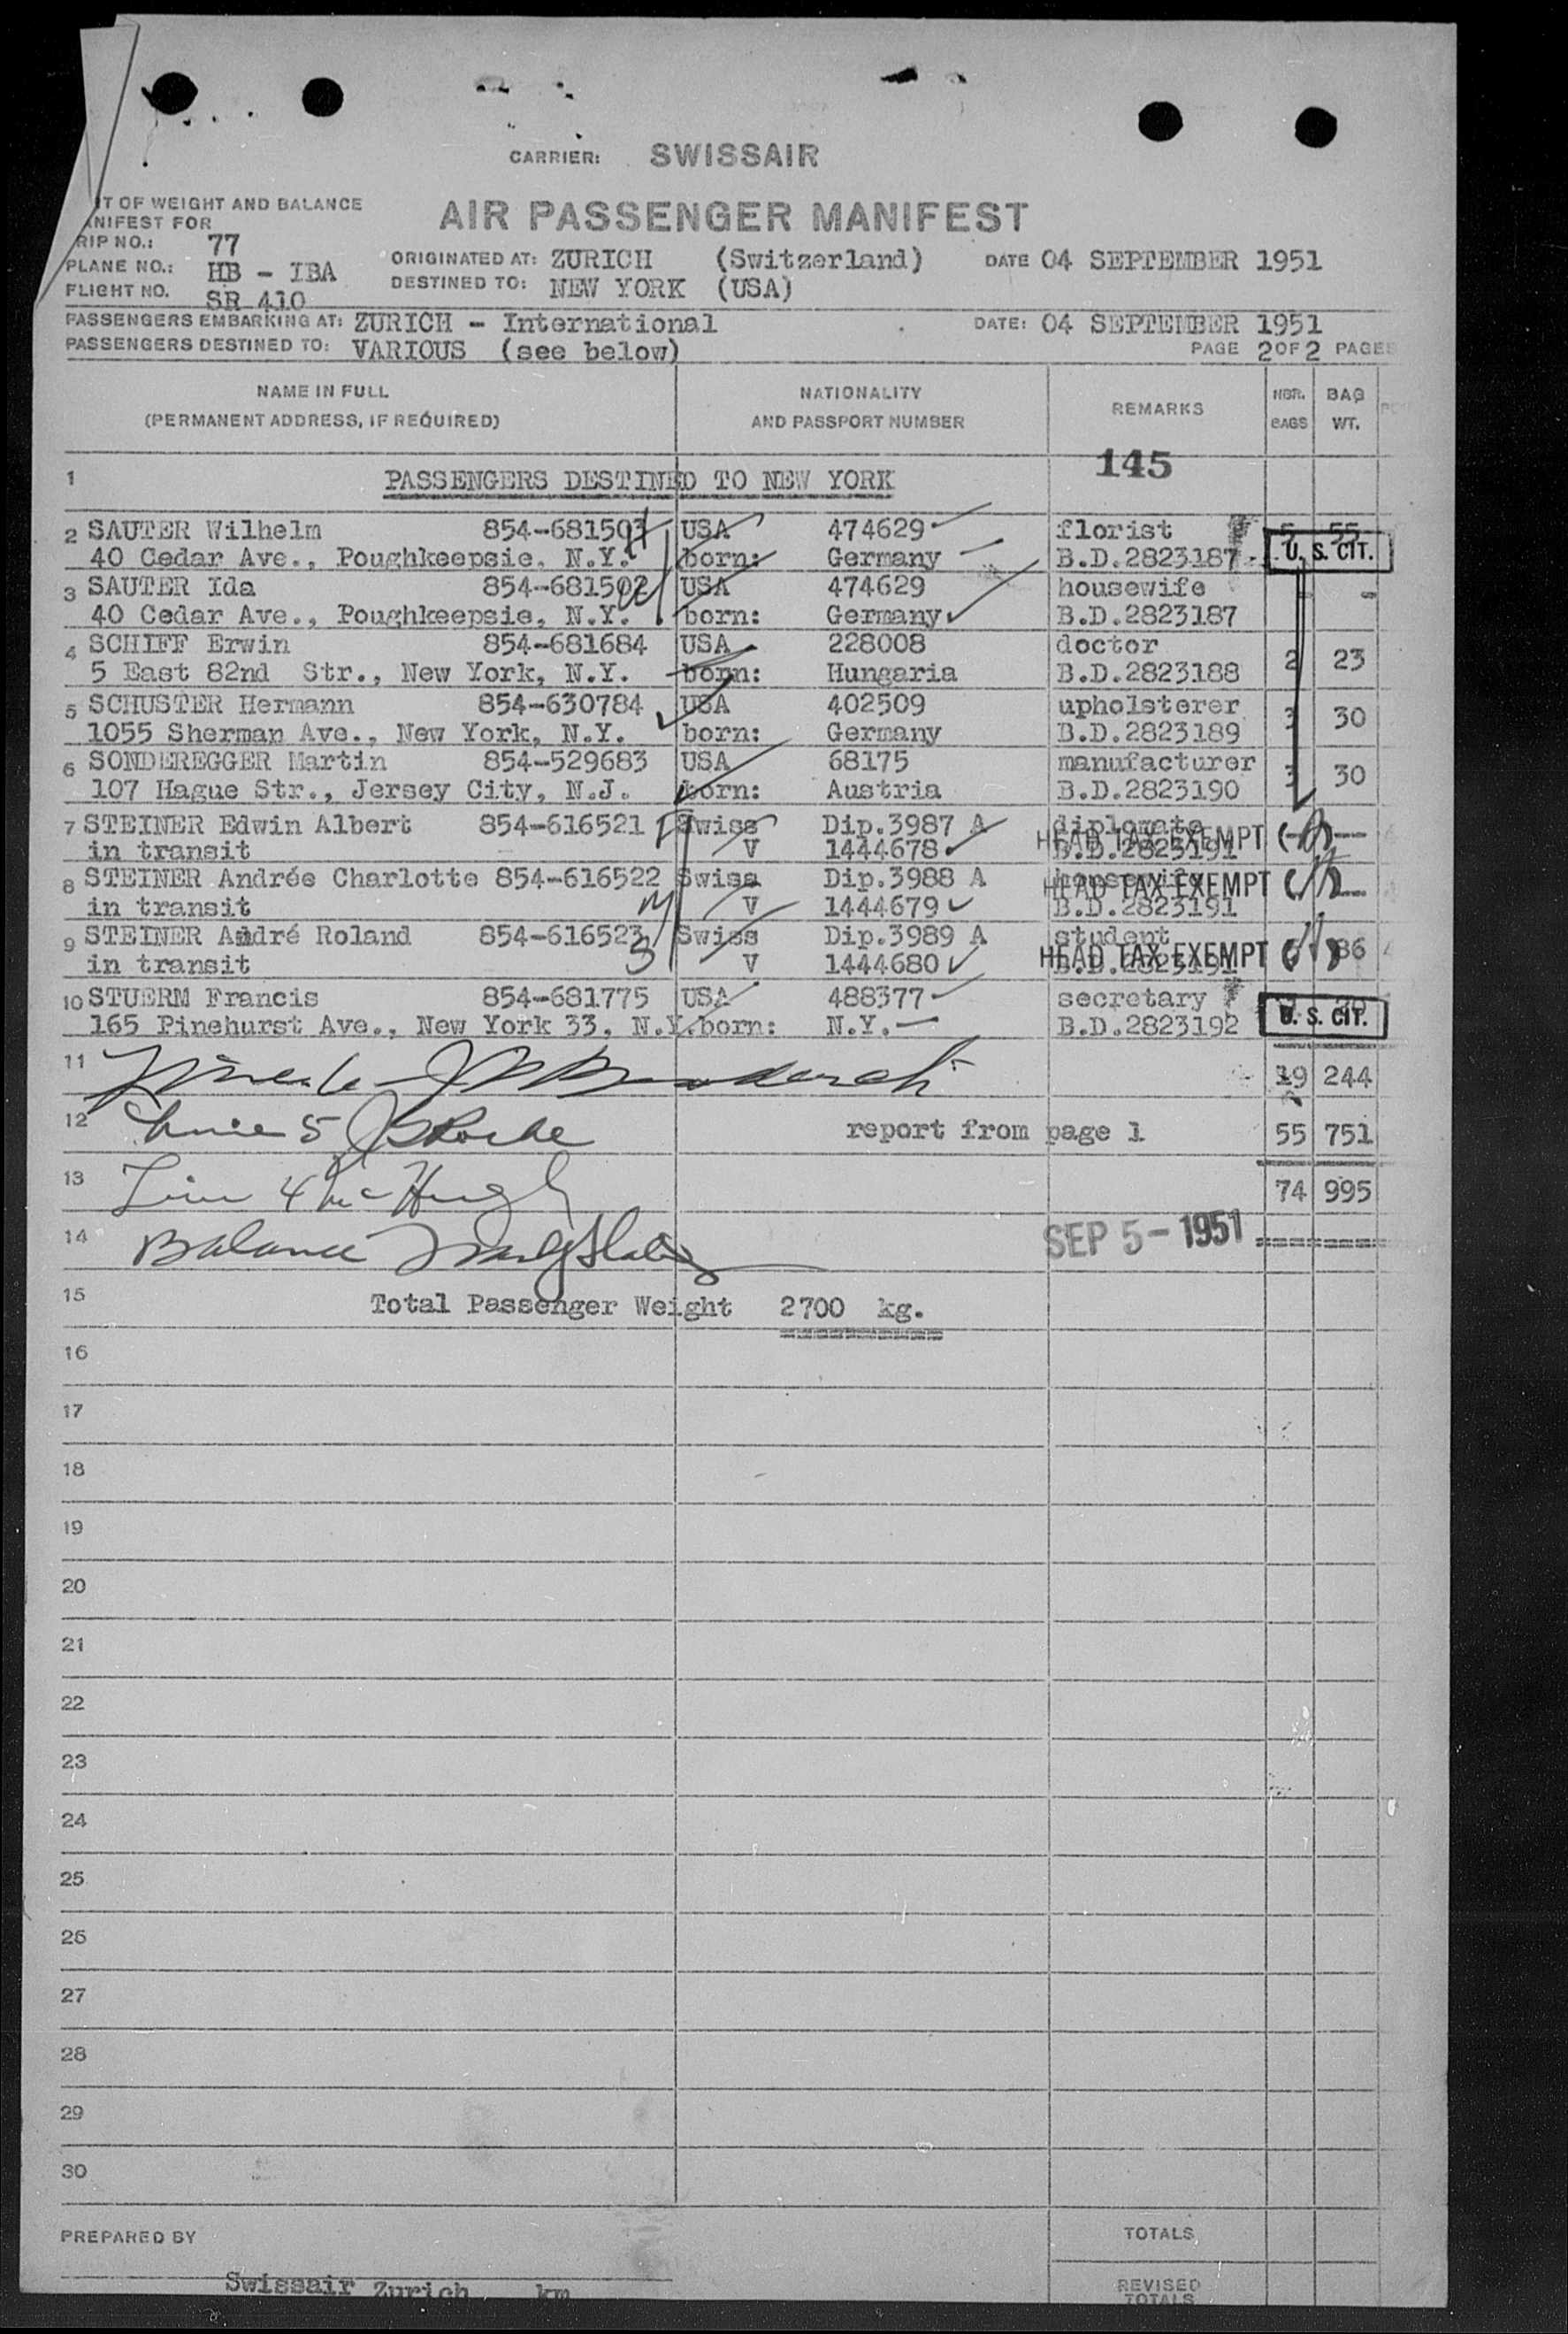 CARRIER: SWISSAIR
T OF WEIGHT AND BALANCE
NIFEST FOR
AIR PASSENGER MANIFEST
RIP NO.: 77
PLANE NO.: HB - IBA
FLIGHT NO. SR 410
ORIGINATED AT: ZURICH (Switzerland) DATE 04 SEPTEMBER 1951
DESTINED TO: NEW YORK (USA)
PASSENGERS EMBARKING AT: ZURICH - International DATE: 04 SEPTEMBER 1951
PASSENGERS DESTINED TO: VARIOUS (see below) PAGE 2 OF 2 PAGES
NAME IN FULL NATIONALITY REMARKS NBR. BAG
(PERMANENT ADDRESS, IF REQUIRED) AND PASSPORT NUMBER BAGS WT.
145
1 PASSENGERS DESTINED TO NEW YORK
2 SAUTER Wilhelm 854-681501 USA 474629 florist 5 55
40 Cedar Ave., Poughkeepsie, N.Y. born: Germany B.D.2823187 U. S. CIT.
3 SAUTER Ida 854-681502 USA 474629 housewife - -
40 Cedar Ave., Poughkeepsie, N.Y. born: Germany B.D.2823187
4 SCHIFF Erwin 854-681684 USA 228008 doctor 2 23
5 East 82nd Str., New York, N.Y. born: Hungaria B.D.2823188
5 SCHUSTER Hermann 854-630784 USA 402509 upholsterer 3 30
1055 Sherman Ave., New York, N.Y. born: Germany B.D.2823189
6 SONDEREGGER Martin 854-529683 USA 68175 manufacturer 3 30
107 Hague Str., Jersey City, N.J. born: Austria B.D.2823190
7 STEINER Edwin Albert 854-616521 Swiss Dip.3987 A diplomate HEAD TAX EXEMPT
in transit V 1444678 B.D.2823191
8 STEINER Andrée Charlotte 854-616522 Swiss Dip.3988 A housewife HEAD TAX EXEMPT
in transit V 1444679 B.D.2823191
9 STEINER André Roland 854-616523 Swiss Dip.3989 A student HEAD TAX EXEMPT 86
in transit V 1444680 B.D.2823191
10 STUERM Francis 854-681775 USA 488377 secretary
165 Pinehurst Ave., New York 33, N.Y. born: N.Y. B.D.2823192 U. S. CIT.
11 19 244
12 report from page 1 55 751
13 74 995
14 Balance SEP 5 - 1951
15 Total Passenger Weight 2700 kg.
16
17
18
19
20
21
22
23
24
25
26
27
28
29
30
PREPARED BY TOTALS
Swissair Zurich km
REVISED
TOTALS